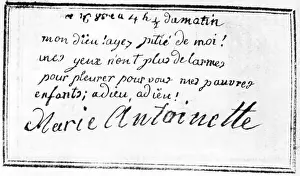 ce 16 8bre a 4 h ½ du matin
mon dieu! ayez pitié de moi!
mes yeux n'ont plus de larmes
pour pleurer pour vous mes pauvres
enfants; adieu, adieu!
Marie Antoinette